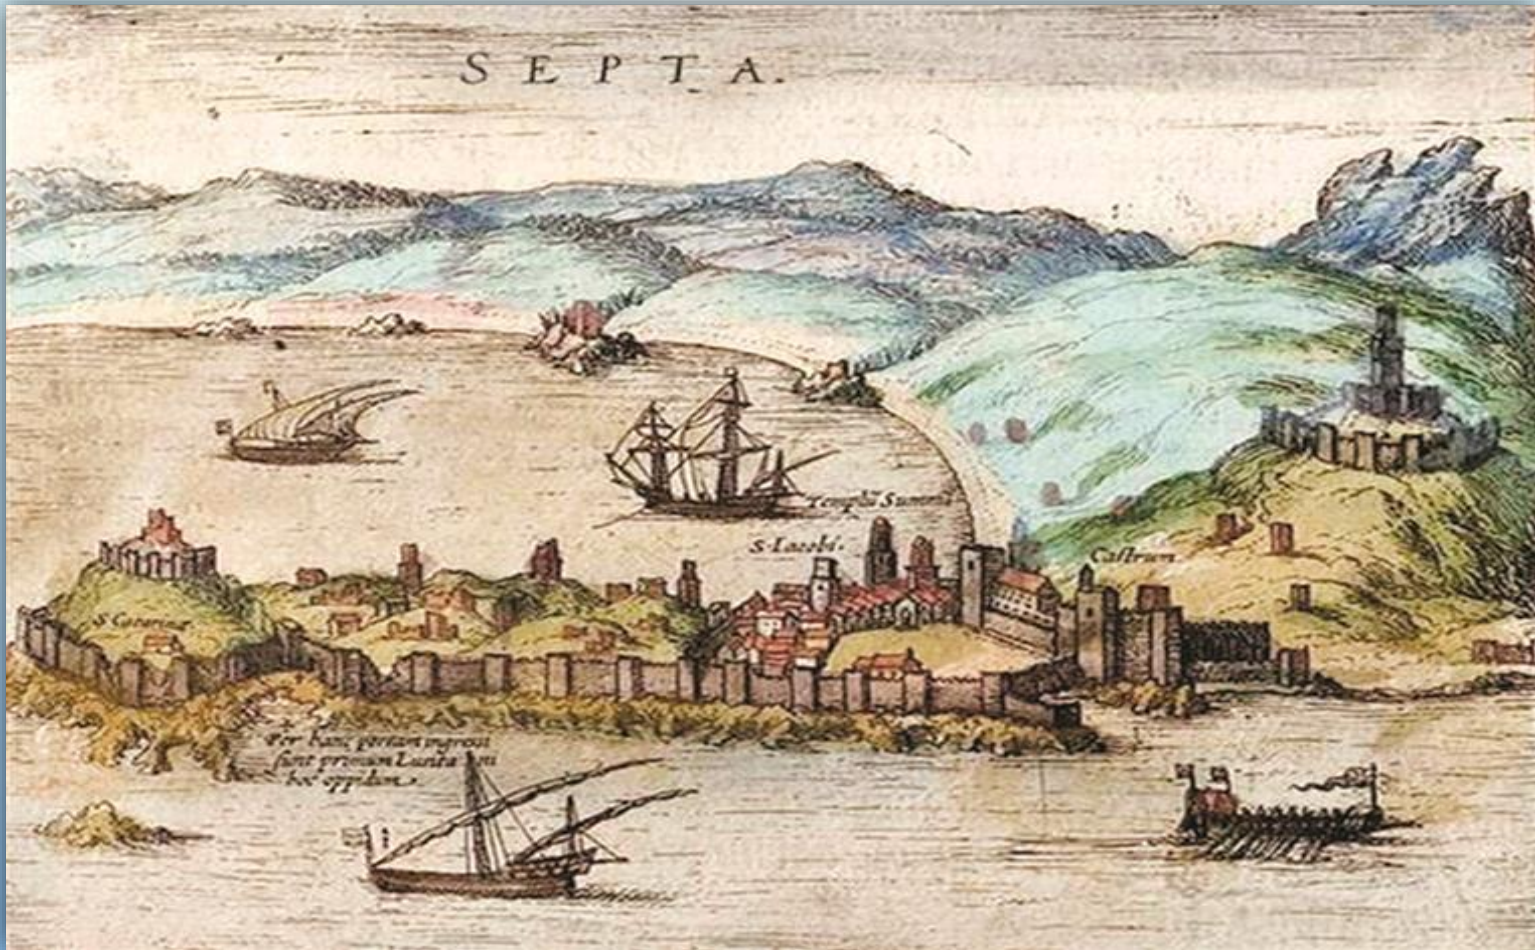 SEPTA.
Templū Summū
S. Iacobi.
Castrum.
S Catarina
Per hanc portam ingressi
sunt primum Lusita ni
hoc oppidum.